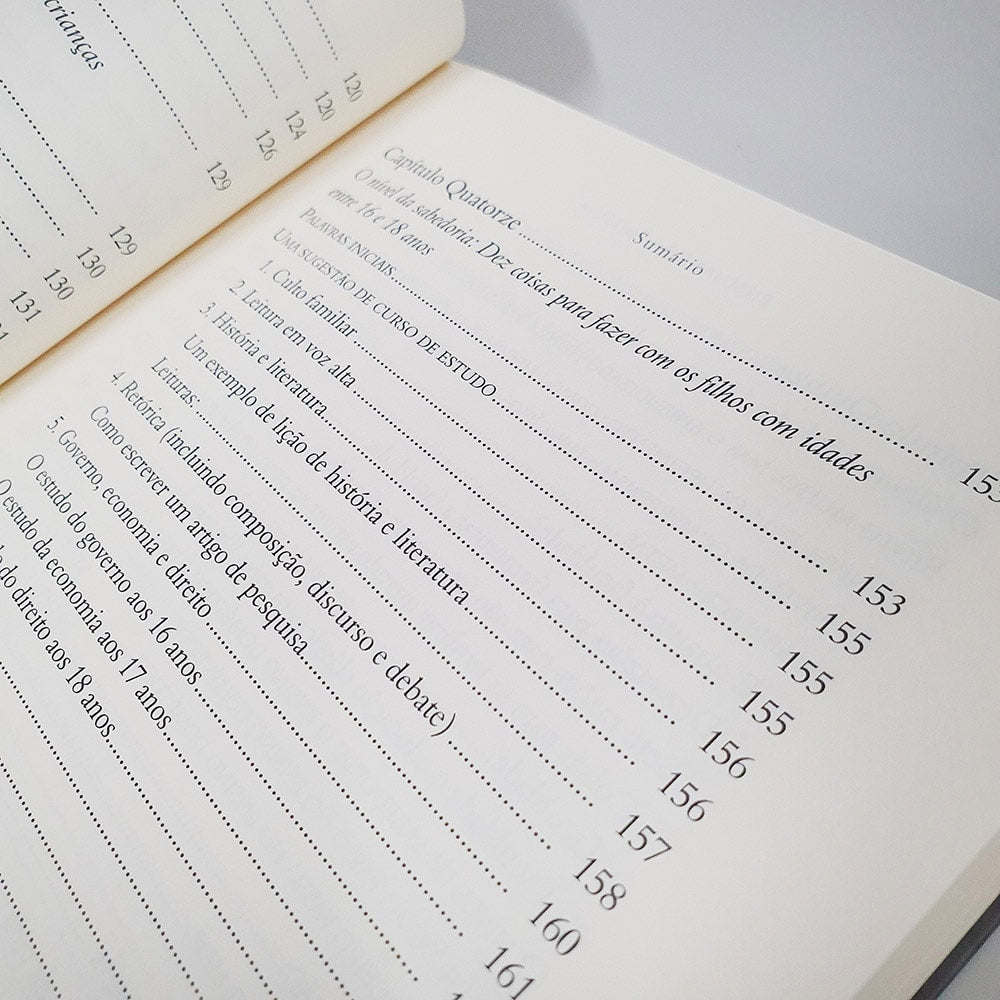 crianças
120
120
124
126
129
129
130
130
131
Sumário
Capítulo Quatorze ........ 153
O nível da sabedoria: Dez coisas para fazer com os filhos com idades
entre 16 e 18 anos
PALAVRAS INICIAIS ........ 153
UMA SUGESTÃO DE CURSO DE ESTUDO ........ 155
1. Culto familiar ........ 155
2. Leitura em voz alta ........ 155
3. História e literatura ........ 156
Um exemplo de lição de história e literatura ........ 156
Leituras: ........ 157
4. Retórica (incluindo composição, discurso e debate) ........ 158
Como escrever um artigo de pesquisa ........ 160
5. Governo, economia e direito ........ 161
O estudo do governo aos 16 anos
O estudo da economia aos 17 anos
do direito aos 18 anos